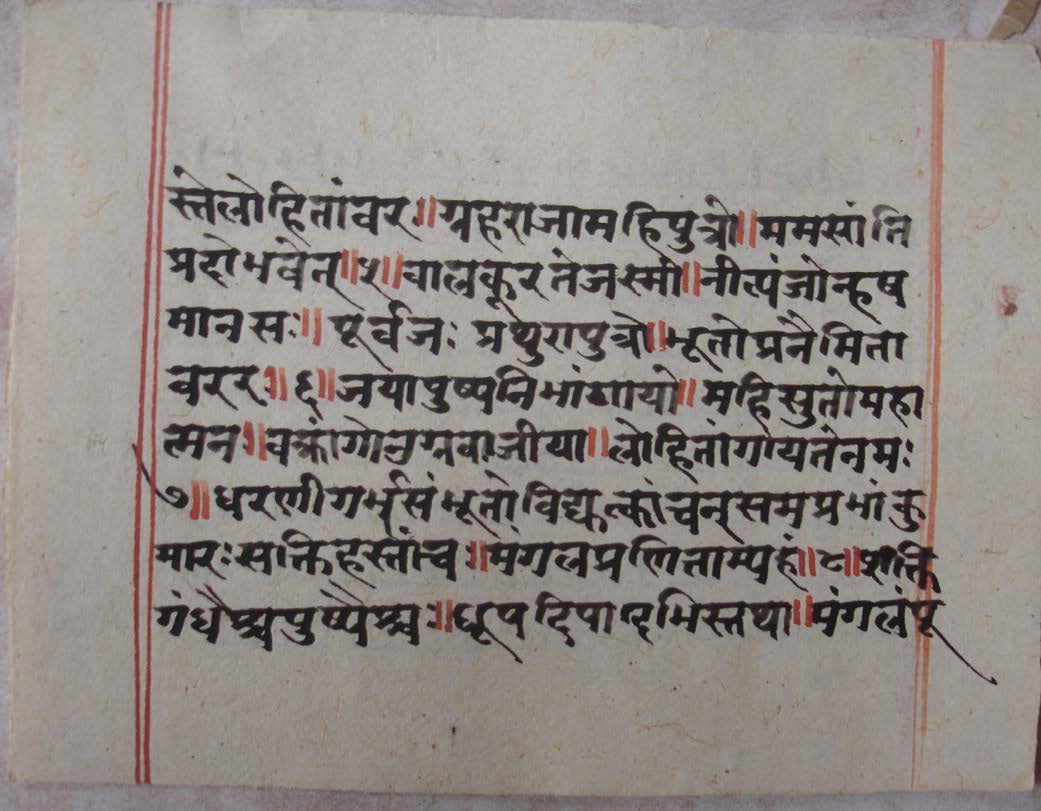 स्तेलोहितांवर॥ग्रहराजामहिपुत्रो॥ममसांति
प्रहोभवेत्॥५॥वालकूरतेजस्मी॥नीलपंजोन्हष
मानसः॥पूर्वजः प्रथुरापुत्रो॥भूतोप्रनैमिता
वरर॥६॥जयापुष्पनिभांगायो॥महिसुतोमहा
त्मन॥वक्रांगो वाजीया॥लोहितांगोयतेनमः
७॥धरणीगर्भसंभूतो विद्युत्कांचनसमप्रभां कु
मारःसक्तिहस्तांच॥मंगलप्रणिताम्यहं॥८॥
गंधैश्चपुष्पैश्च॥धूपदिपादिभिस्तथा॥मंगलंपू